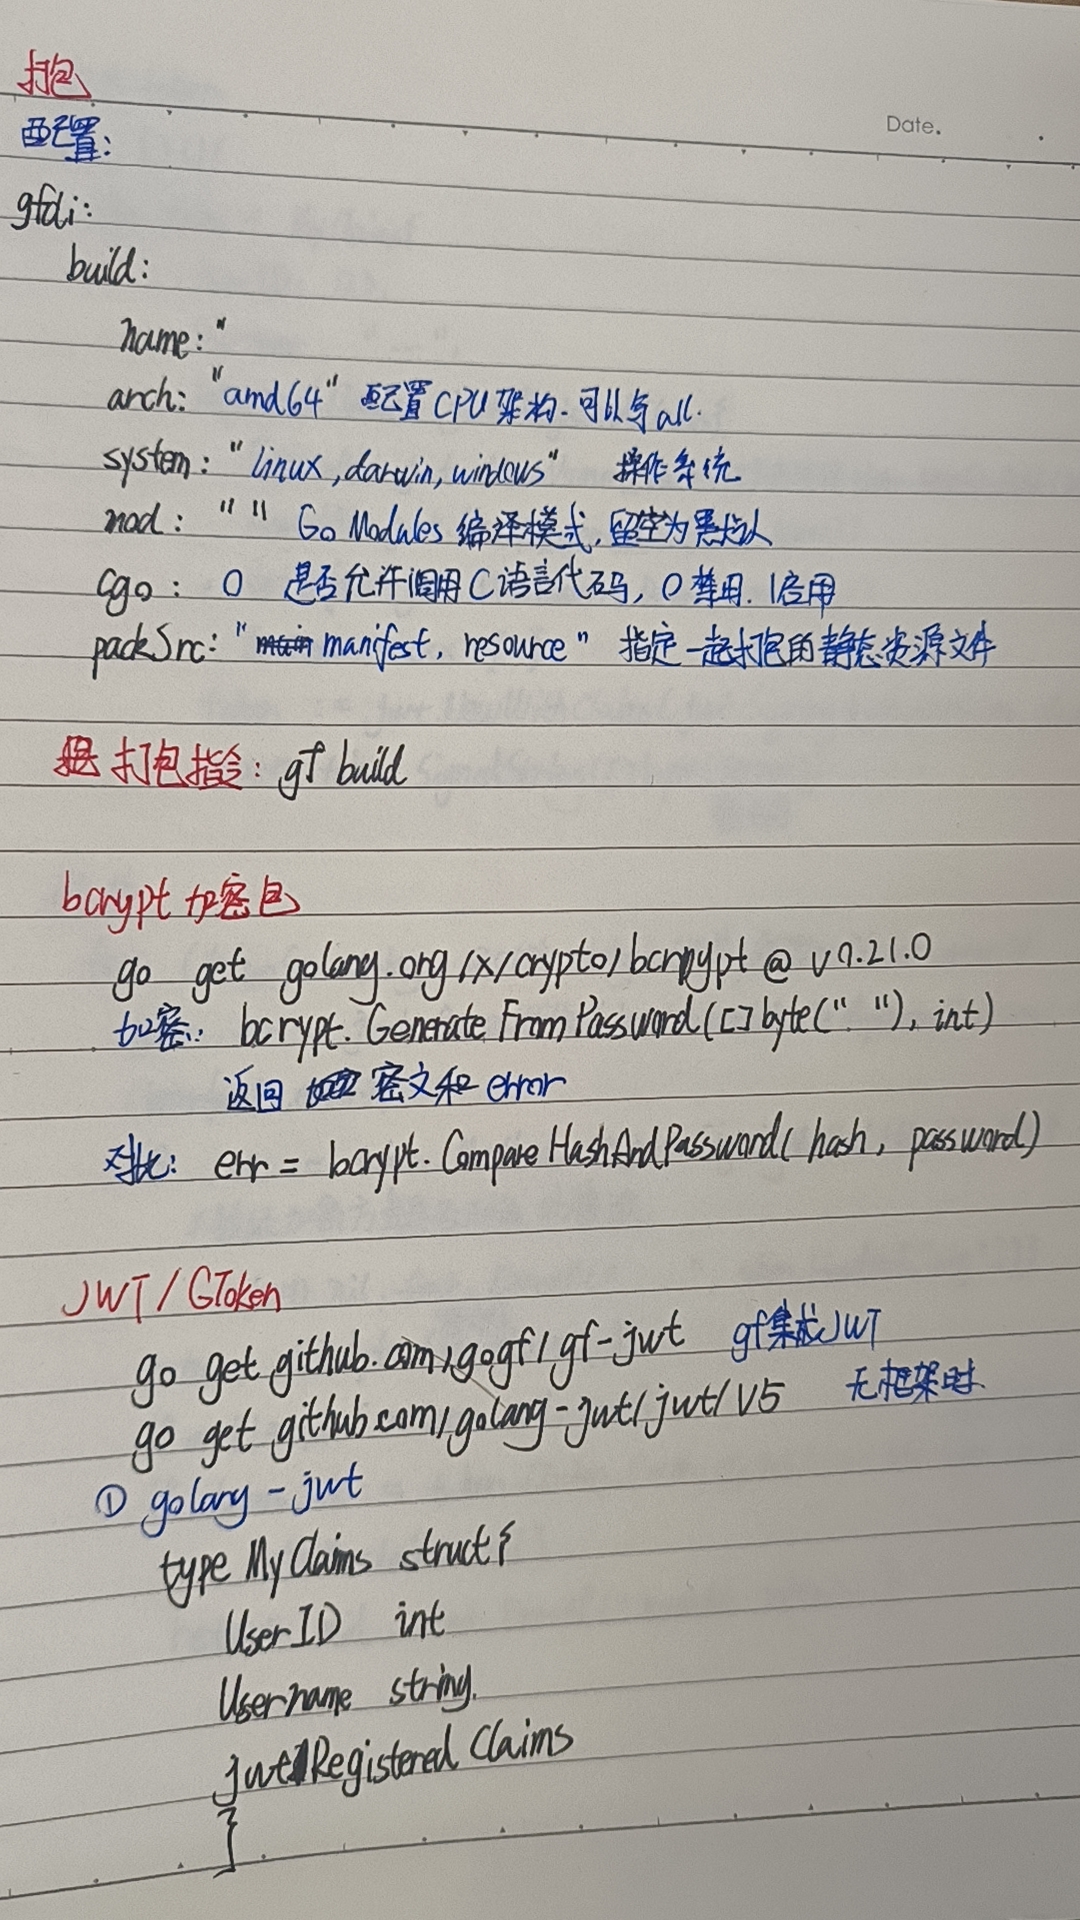 打包
Date.
配置:
gfcli:
build:
name: "
arch: "amd64" 配置CPU架构. 可以写all.
system: "linux,darwin,windows" 操作系统
mod: " " Go Modules 编译模式, 留空为默认
cgo: 0 是否允许调用C语言代码, 0禁用. 1启用
packSrc: "manifest, resource" 指定一起打包的静态资源文件
打包指令: gf build
bcrypt 加密包
go get golang.org/x/crypto/bcrpypt@v0.21.0
加密: bcrypt.GenerateFromPassword([]byte(" "), int)
返回 密文和error
对比: err = bcrypt.CompareHashAndPassword(hash, password)
JWT/GToken
go get github.com/gogf/gf-jwt gf集成JWT
go get github.com/golang-jwt/jwt/v5 无框架时
① golang-jwt
type MyClaims struct{
UserID int
Username string.
jwt.RegisteredClaims
}